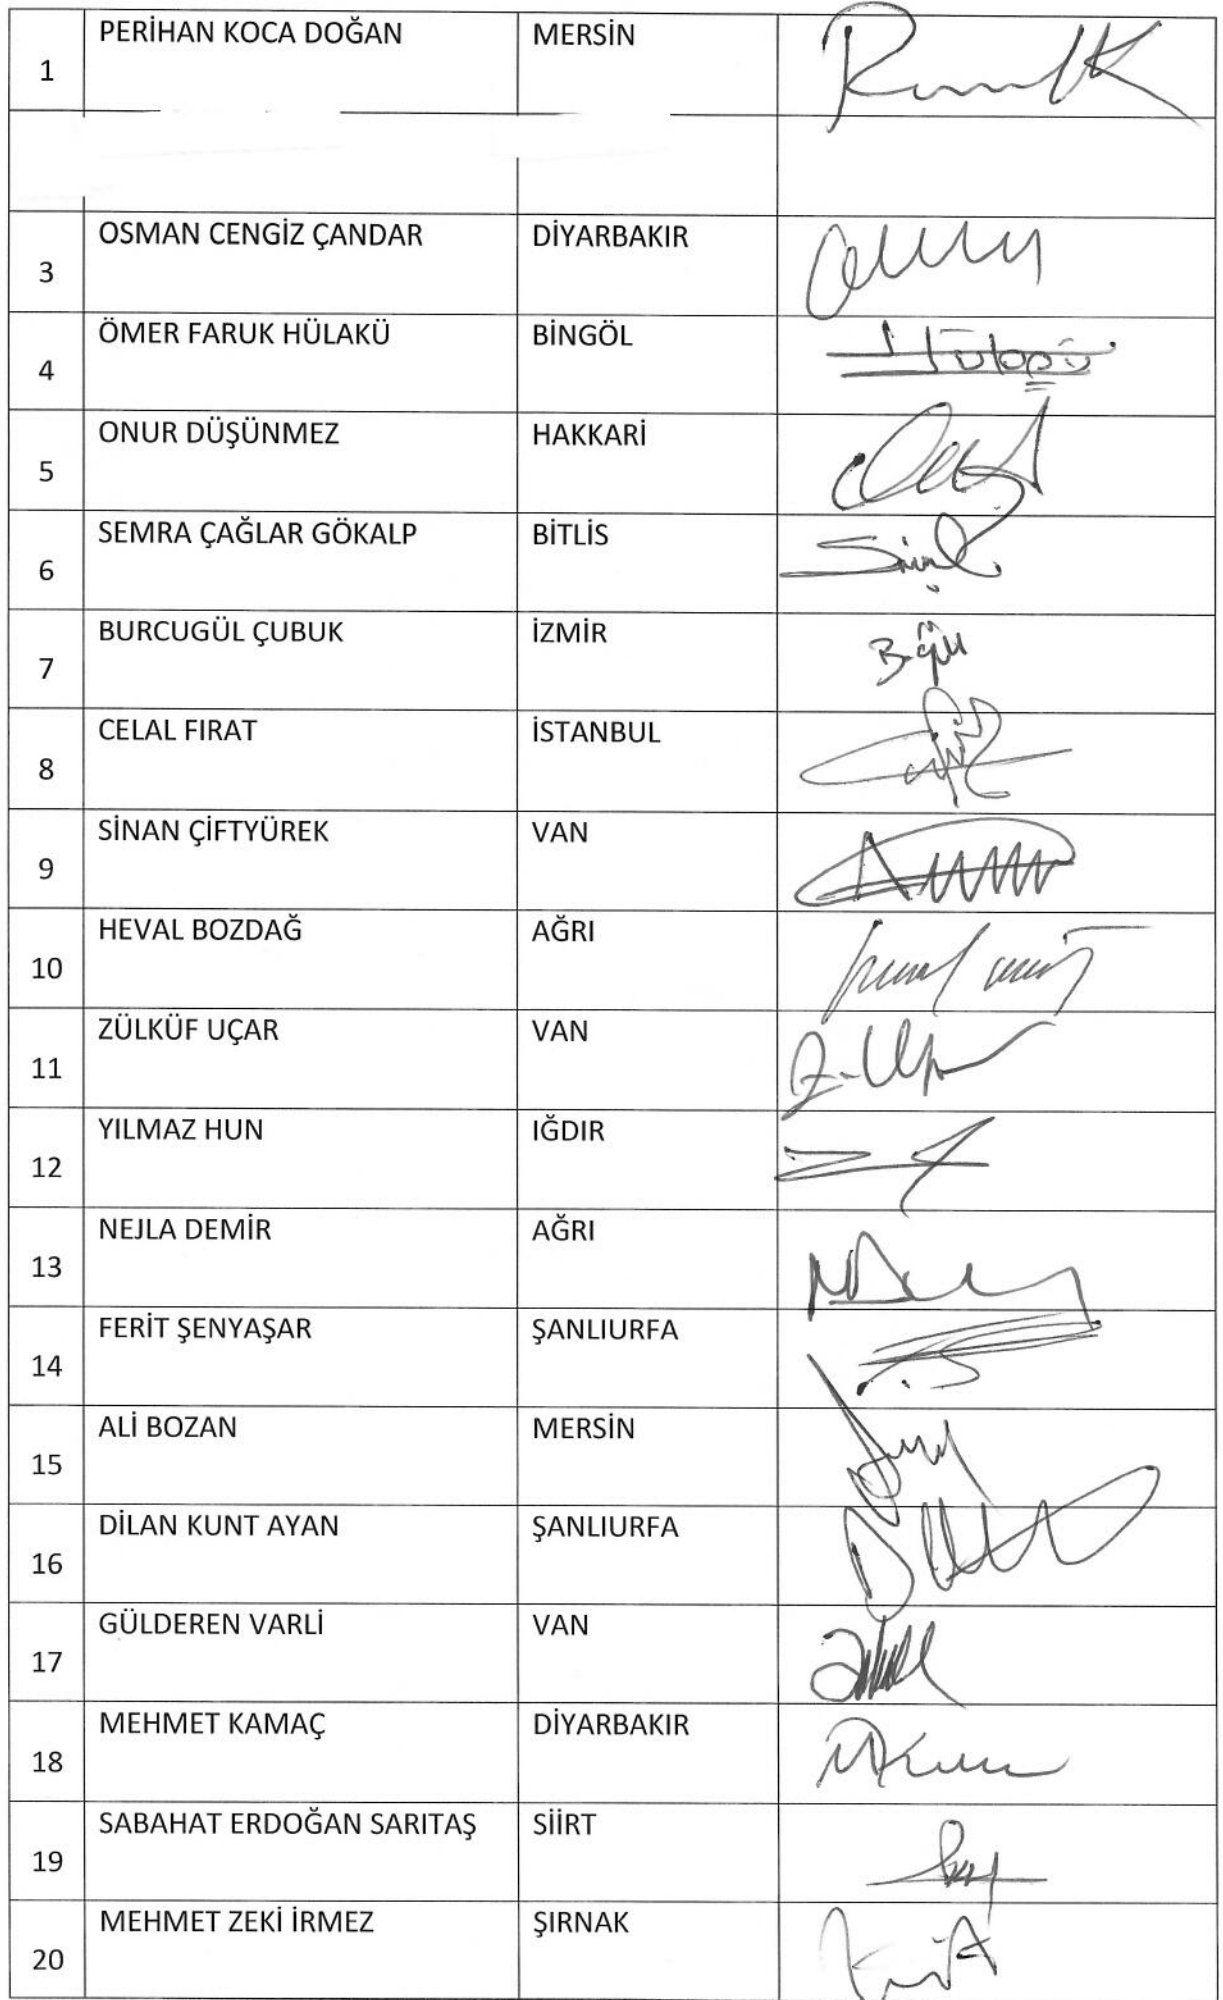 1 PERİHAN KOCA DOĞAN MERSİN
3 OSMAN CENGİZ ÇANDAR DİYARBAKIR
4 ÖMER FARUK HÜLAKÜ BİNGÖL
5 ONUR DÜŞÜNMEZ HAKKARİ
6 SEMRA ÇAĞLAR GÖKALP BİTLİS
7 BURCUGÜL ÇUBUK İZMİR
8 CELAL FIRAT İSTANBUL
9 SİNAN ÇİFTYÜREK VAN
10 HEVAL BOZDAĞ AĞRI
11 ZÜLKÜF UÇAR VAN
12 YILMAZ HUN IĞDIR
13 NEJLA DEMİR AĞRI
14 FERİT ŞENYAŞAR ŞANLIURFA
15 ALİ BOZAN MERSİN
16 DİLAN KUNT AYAN ŞANLIURFA
17 GÜLDEREN VARLİ VAN
18 MEHMET KAMAÇ DİYARBAKIR
19 SABAHAT ERDOĞAN SARITAŞ SİİRT
20 MEHMET ZEKİ İRMEZ ŞIRNAK